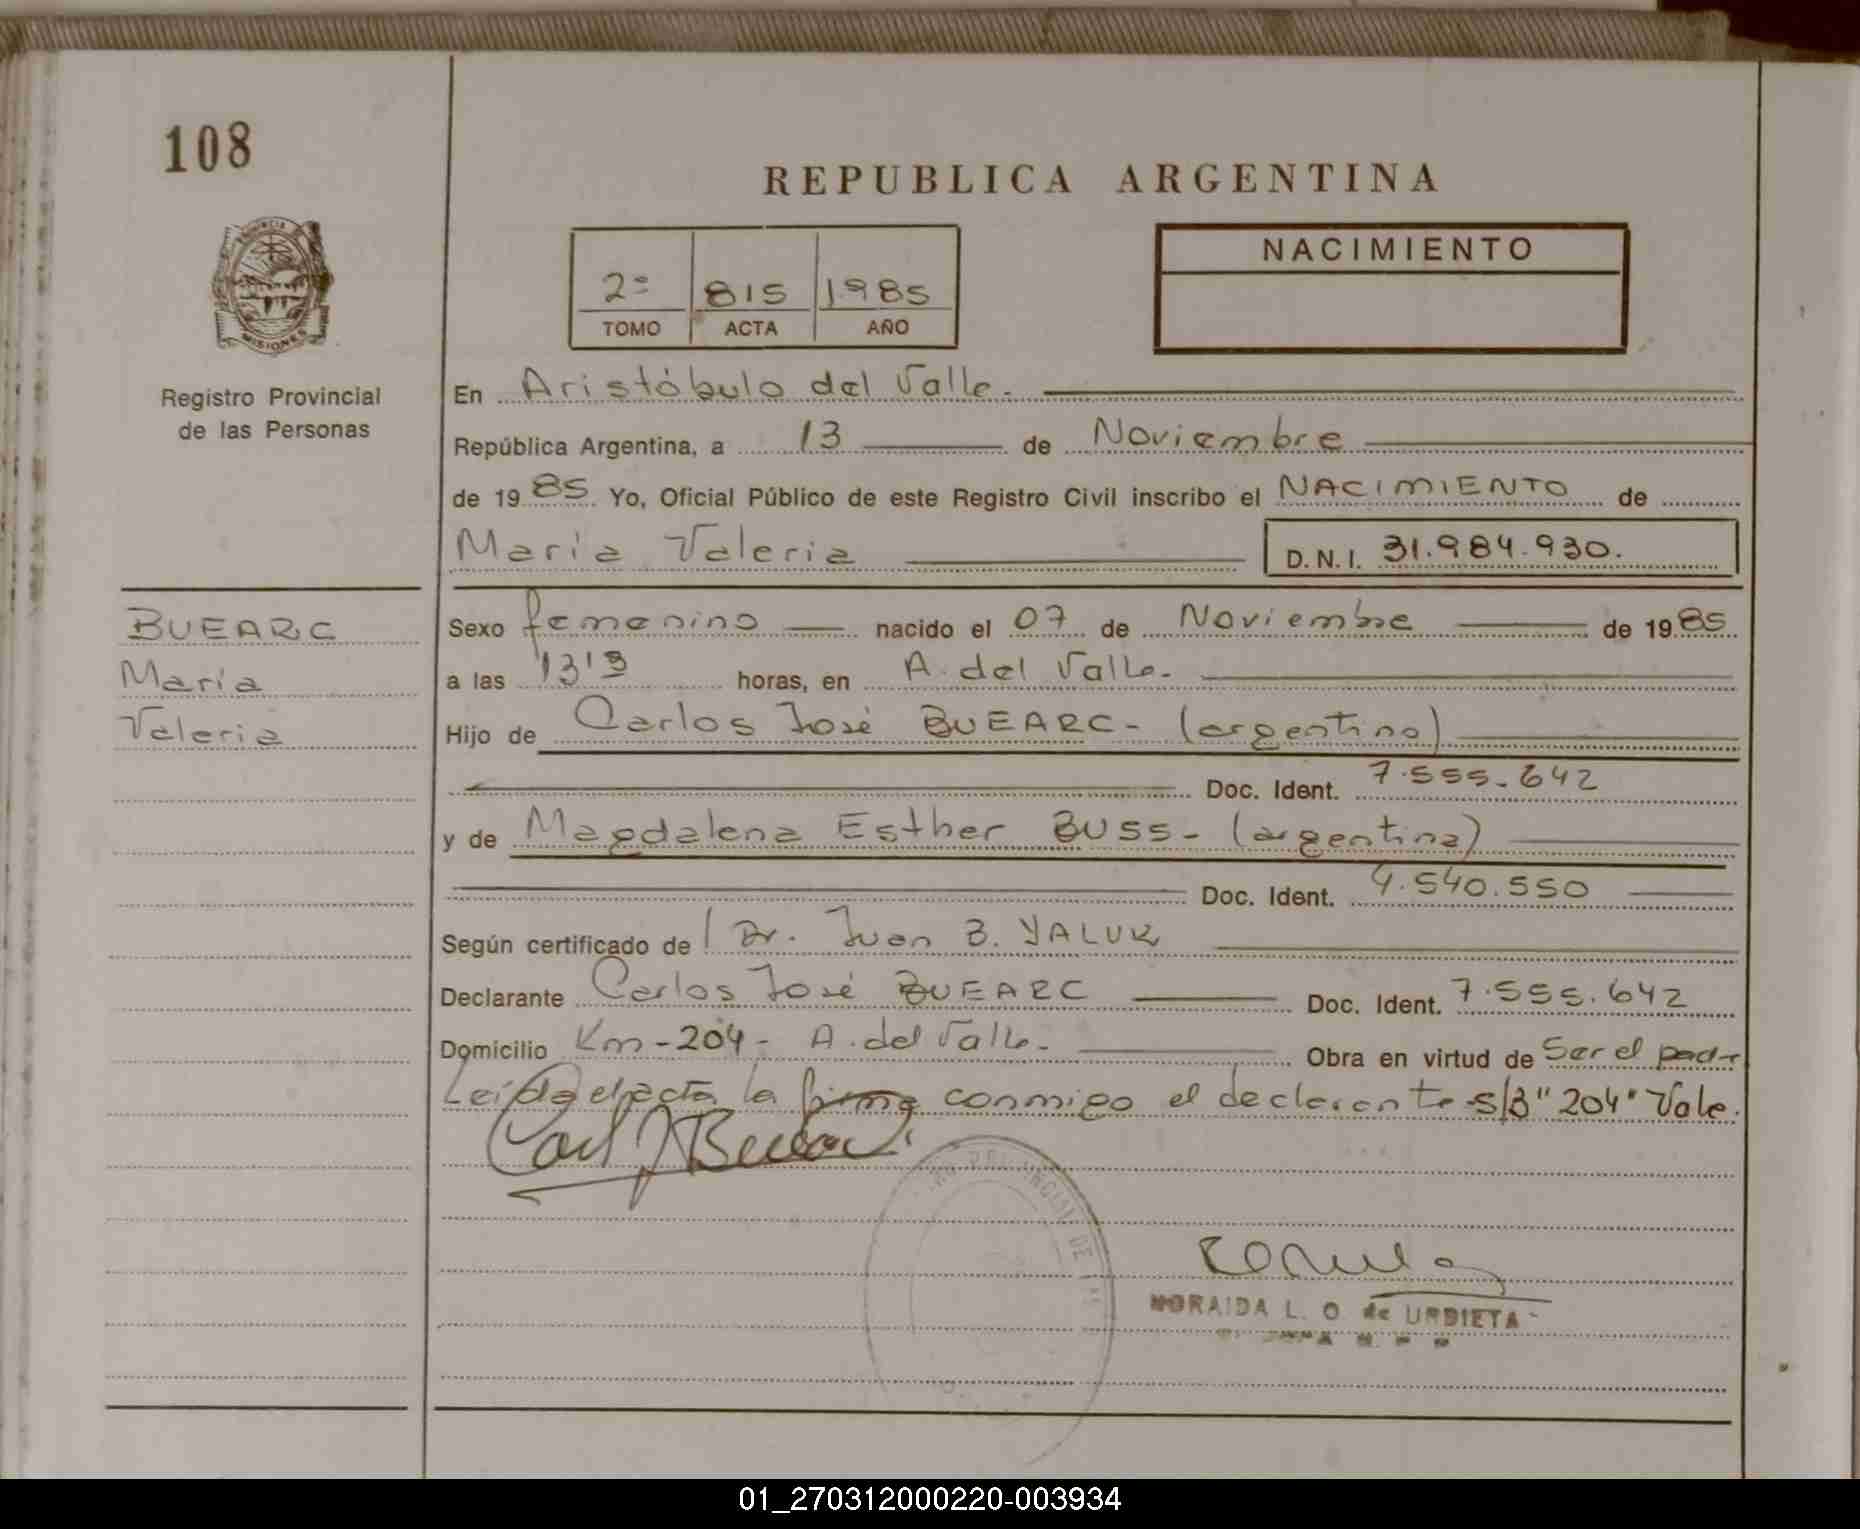 108
REPUBLICA ARGENTINA
PROVINCIA DE
MISIONES
2º 815 1985
TOMO ACTA AÑO
NACIMIENTO
Registro Provincial
de las Personas
En Aristóbulo del Valle.
República Argentina, a 13 de Noviembre
de 1985 Yo, Oficial Público de este Registro Civil inscribo el NACIMIENTO de
María Valeria D.N.I. 31.984.930.
BUEARC
María
Valeria
Sexo femenino nacido el 07 de Noviembre de 1985
a las horas, en A. del Valle.
Hijo de Carlos José BUEARC - (argentino)
Doc. Ident. 7.555.642
y de Magdalena Esther BUSS - (argentina)
Doc. Ident. 4.540.550
Según certificado de Dr. Juan B. YALUK
Declarante Carlos José BUEARC Doc. Ident. 7.555.642
Domicilio Km - 204 - A. del Valle. Obra en virtud de Ser el padr
Leída el acta la firma conmigo el declarante s/B "204" Vale.
NORAIDA L. O. de URBIETA
01_270312000220-003934